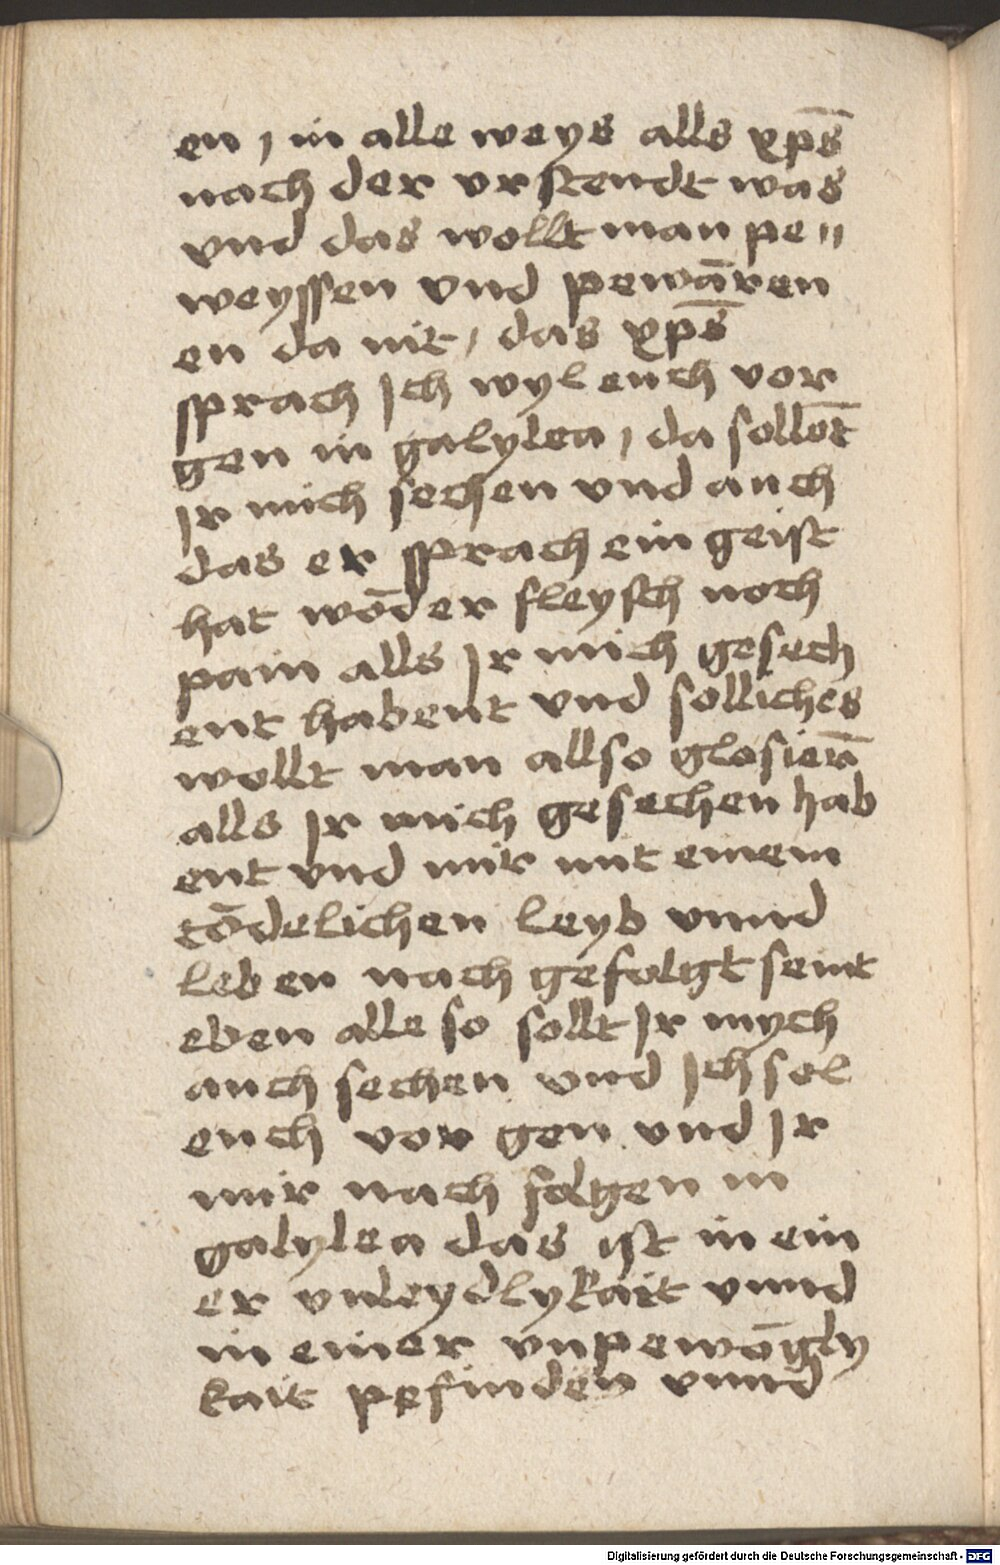 en / in alle weys alls xp̄s
nach der vrstendt was
vnd das wollt man pe॥
weyssen vnd pewāren
en da nit / das xp̄s
sprach Ich wyl euch vor
gen in galylea / da sollot̄
Ir mich sechen vnd auch
das er sprach ein geist
hat wōder fleysch noch
pain alls Ir mich gesech
ent habent vnd solliches
wollt man allso glosiern̄
alls Ir mich gesechen hab
ent vnd mir mit einem
tōdelichen leyb vnnd
leben nach gefolgt seint
eben alle so sollt Ir mych
auch sechen vnd Ich sol
euch vor gen vnd Ir
mir nach folgen in
galylea das ist in ein
er vnleydlykait vnnd
in einer vnpewōgly
kait pefinden vnnd
Digitalisierung gefördert durch die Deutsche Forschungsgemeinschaft - DFG